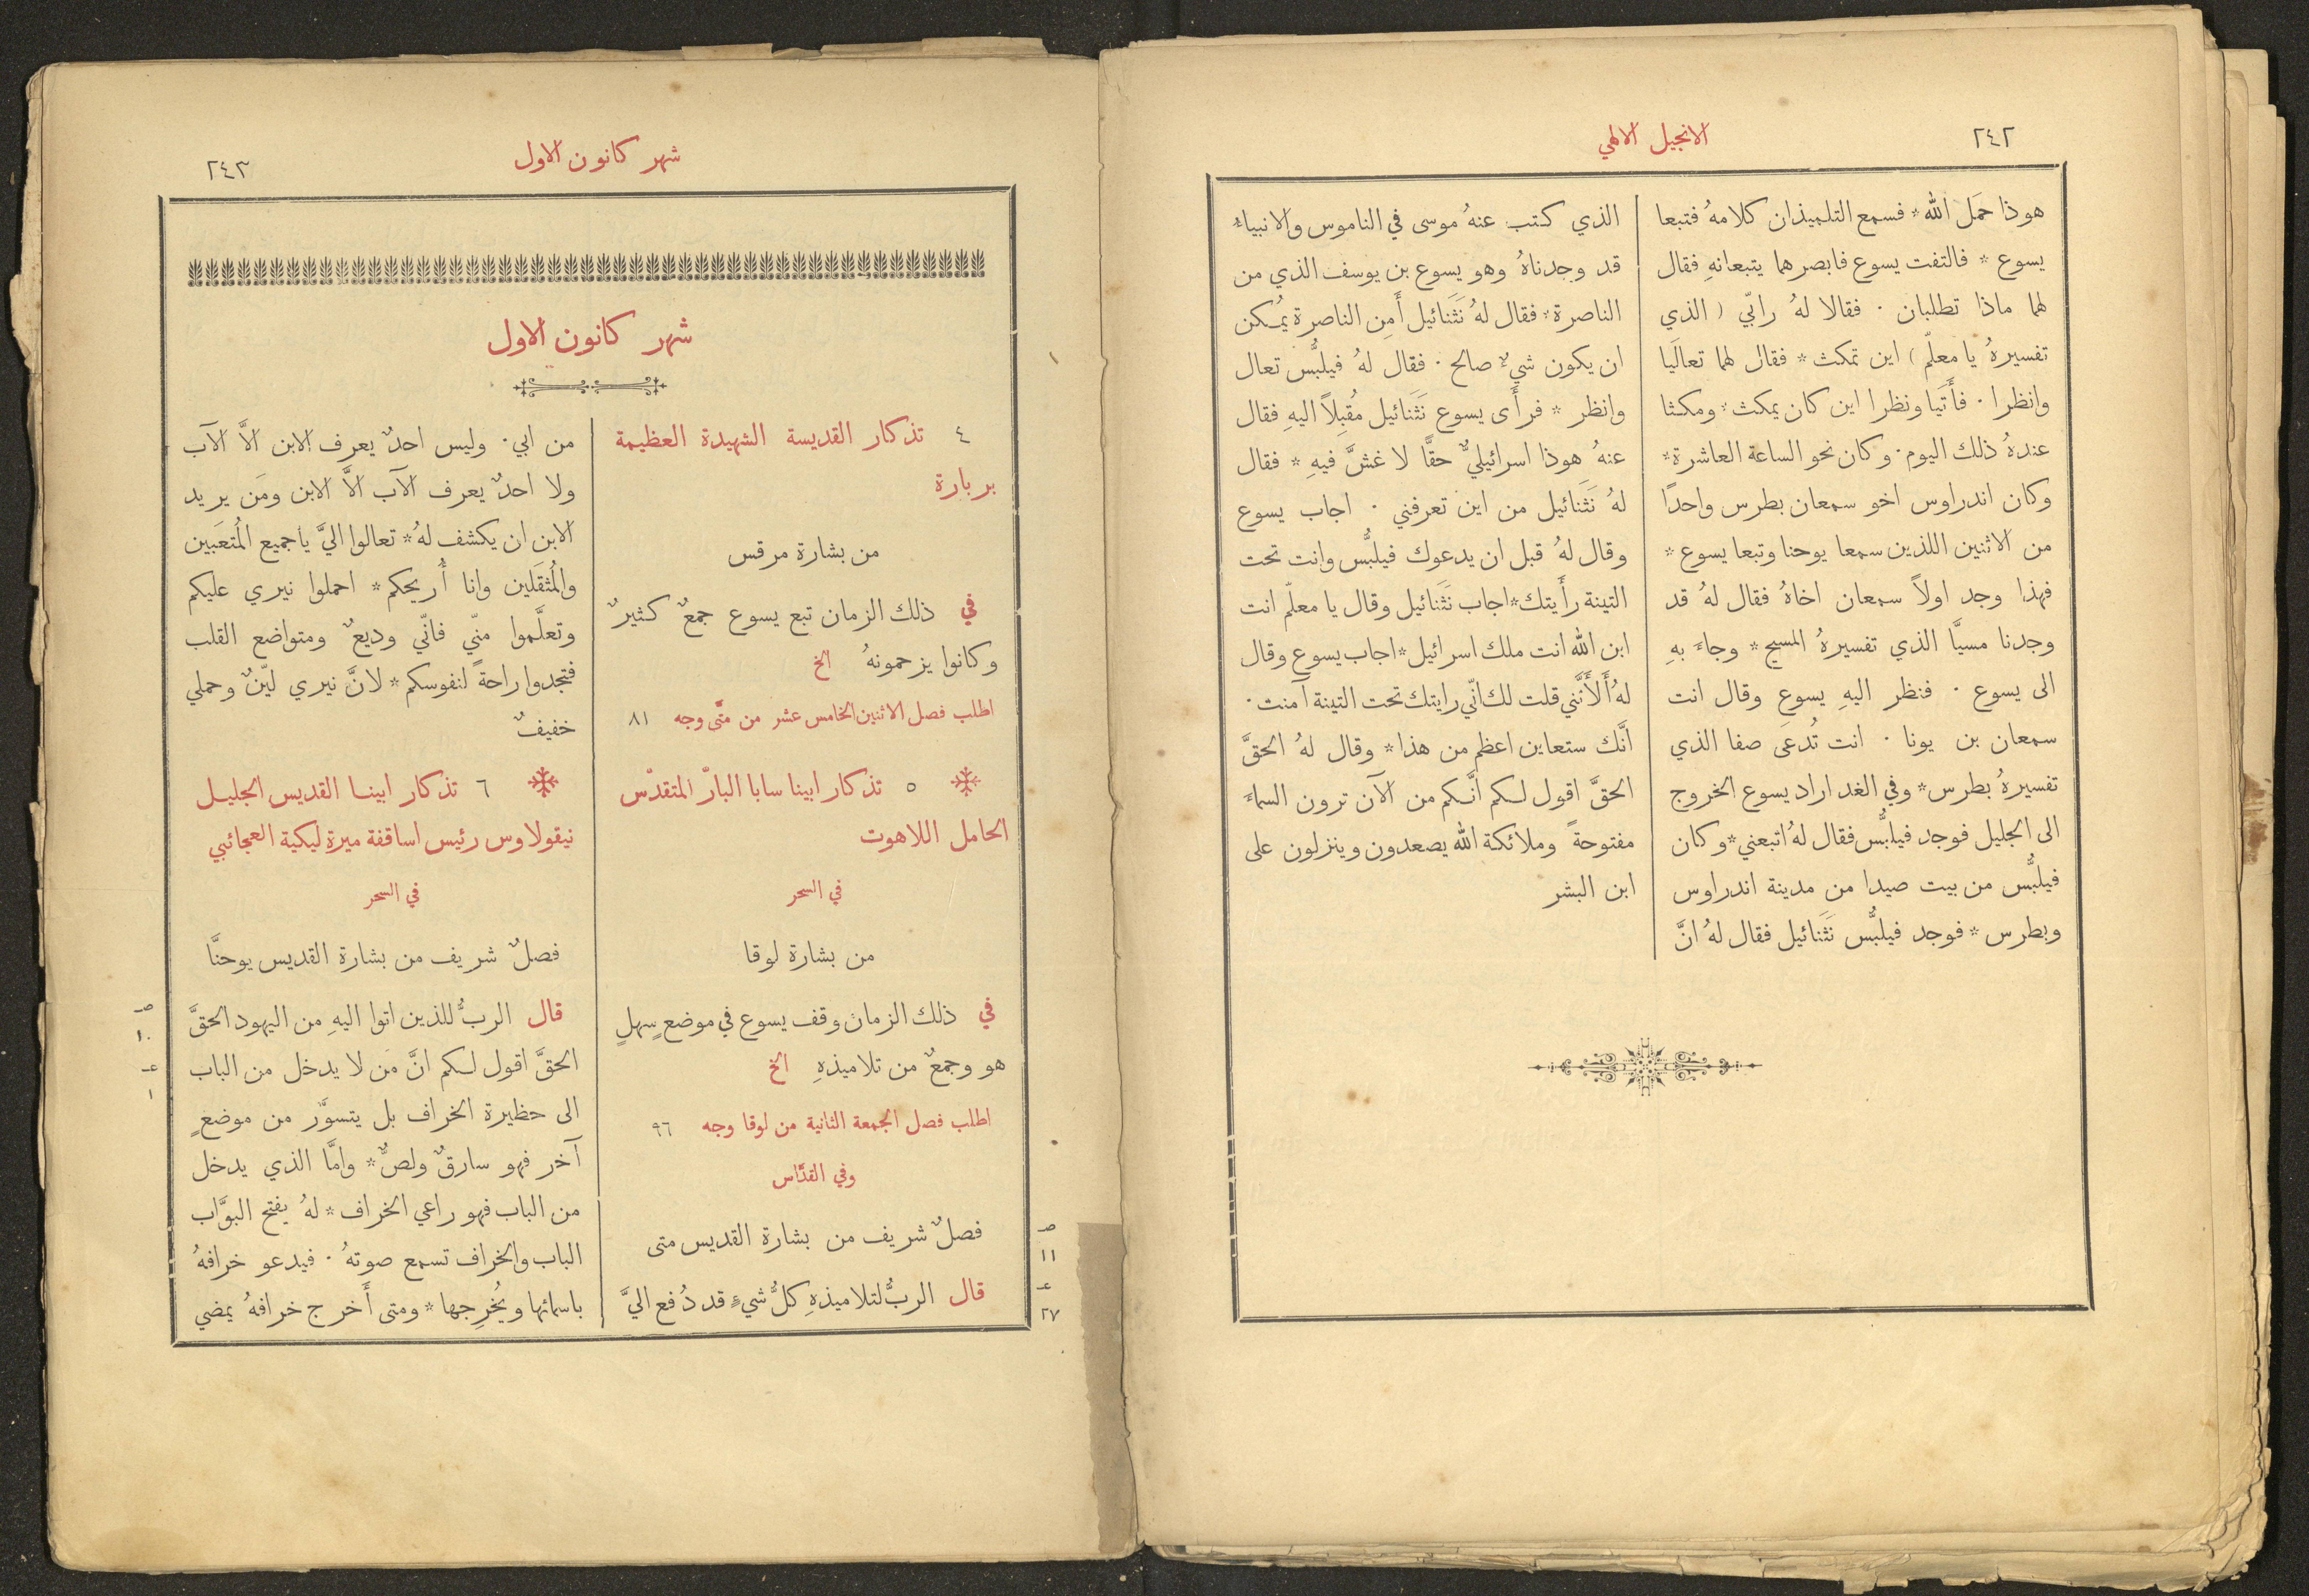 ٢٤٢
الانجيل الالهي
هوذا حمَل الله * فسمع التلميذان كلامهُ فتبعا
يسوع * فالتفت يسوع فابصرهما يتبعانهِ فقال
لهما ماذا تطلبان ۰ فقالا لهُ رابّي ( الذي
تفسيرهُ يا معلّم ) اين تمكث * فقال لهما تعالَيا
وانظرا ۰ فأَتَيا ونظرا اين كان يمكث * ومكثا
عندهُ ذلك اليوم ۰ وكان نحو الساعة العاشرة *
وكان اندراوس اخو سمعان بطرس واحدًا
من الاثنين اللذين سمعا يوحنا وتبعا يسوع *
فهذا وجد اولاً سمعان اخاهُ فقال لهُ قد
وجدنا مسيَّا الذي تفسيرهُ المسيح * وجاءَ بهِ
الى يسوع ۰ فنظر اليهِ يسوع وقال انت
سمعان بن يونا ۰ انت تُدعَى صفا الذي
تفسيرهُ بطرس * وفي الغد اراد يسوع الخروج
الى الجليل فوجد فيلبُّس فقال لهُ اتبعني * وكان
فيلبُّس من بيت صيدا من مدينة اندراوس
وبطرس * فوجد فيلبُّس نَثَنائيل فقال لهُ انَّ
الذي كتب عنهُ موسى في الناموس والانبياءُ
قد وجدناهُ وهو يسوع بن يوسف الذي من
الناصرة * فقال لهُ نَثَنائيل أَمِن الناصرة يُمكن
ان يكون شيءٌ صالح ۰ فقال لهُ فيلبُّس تعال
وانظر * فرأَى يسوع نَثَنائيل مُقبِلاً اليهِ فقال
عنهُ هوذا اسرائيليٌّ حقًّا لا غشَّ فيهِ * فقال
لهُ نَثَنائيل من اين تعرفني ۰ اجاب يسوع
وقال لهُ قبل ان يدعوك فيلبُّس وانت تحت
التينة رأَيتك * اجاب نَثَنائيل وقال يا معلّم انت
ابن الله انت ملك اسرائيل * اجاب يسوع وقال
لهُ أَلأَنَّني قلت لك انّي رايتك تحت التينة آمنت ۰
انَّك ستعاين اعظم من هذا * وقال لهُ الحقَّ
الحقَّ اقول لكم انَّكم من الآن ترون السماءَ
مفتوحةً وملائكة الله يصعدون وينزلون على
ابن البشر
شهر كانون الاول
٢٤٣
شهر كانون الاول
٤ تذكار القديسة الشهيدة العظيمة
بربارة
من بشارة مرقس
في ذلك الزمان تبع يسوع جمعٌ كثيرٌ
وكانوا يزحمونهُ الخ
اطلب فصل الاثنين الخامس عشر من متَّى وجه ٨١
٥ تذكار ابينا سابا البارّ المتقدّس
الحامل اللاهوت
في السحر
من بشارة لوقا
في ذلك الزمان وقف يسوع في موضعٍ سهلٍ
هو وجمعٌ من تلاميذهِ الخ
اطلب فصل الجمعة الثانية من لوقا وجه ٩٦
وفي القدَّاس
فصلٌ شريف من بشارة القديس متى
صـ
١١
عـ
٢٧
قال الربُّ لتلاميذهِ كلُّ شيءٍ قد دُفع اليَّ
من ابي ۰ وليس احدٌ يعرف الابن الاَّ الآب
ولا احدٌ يعرف الآب الاَّ الابن ومَن يريد
الابن ان يكشف لهُ * تعالوا اليَّ يا جميع المُتعَبين
والمُثقَلين وانا أُريحكم * احملوا نيري عليكم
وتعلَّموا منّي فانّي وديعٌ ومتواضع القلب
فتجدوا راحةً لنفوسكم * لانَّ نيري ليّنٌ وحملي
خفيفٌ
٦ تذكار ابينا القديس الجليل
نيقولاوس رئيس اساقفة ميرة ليكية العجائبي
في السحر
فصلٌ شريف من بشارة القديس يوحنَّا
صـ
١٠
عـ
١
قال الربُّ للذين اتوا اليهِ من اليهود الحقَّ
الحقَّ اقول لكم انَّ مَن لا يدخل من الباب
الى حظيرة الخراف بل يتسوَّر من موضعٍ
آخر فهو سارقٌ ولصٌّ * وامَّا الذي يدخل
من الباب فهو راعي الخراف * لهُ يفتح البوَّاب
الباب والخراف تسمع صوتهُ ۰ فيدعو خرافهُ
باسمائها ويُخرِجها * ومتى أَخرج خرافهُ يمضي